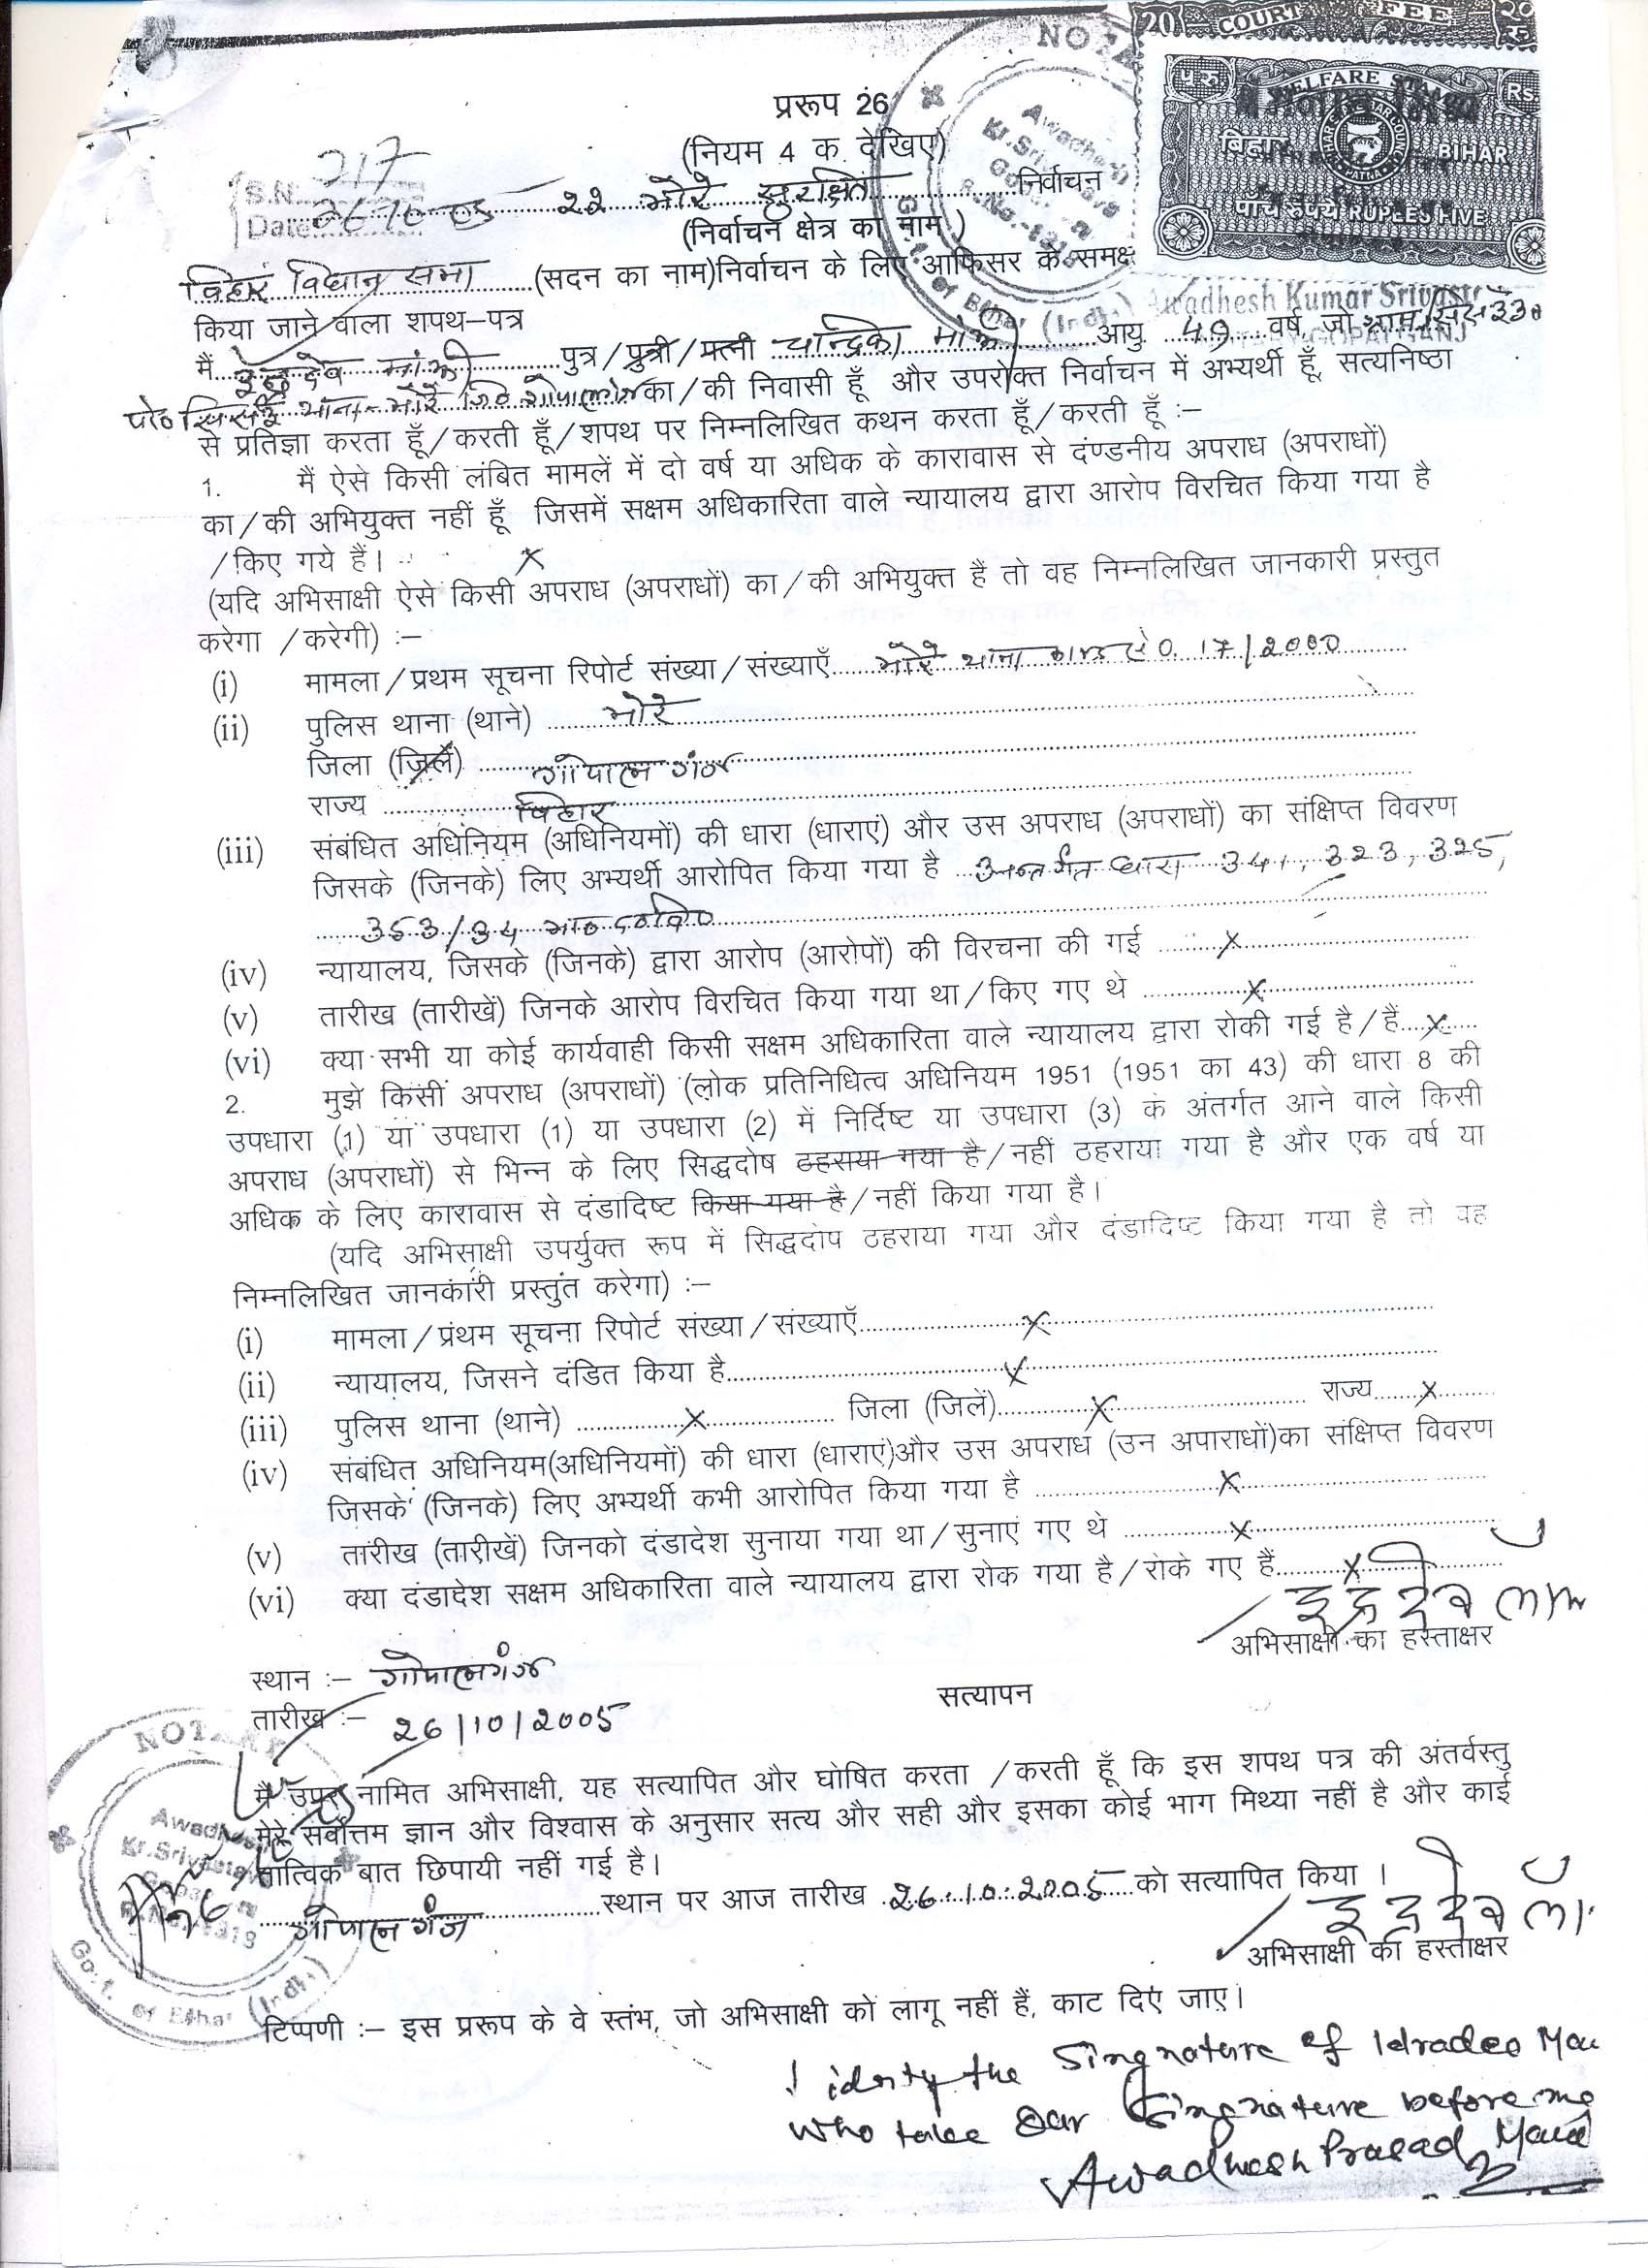 20 COURT FEE 20
NOTA
प रु. WELFARE STAMP RS.
बिहार BIHAR
पाँच रुपये RUPEES FIVE
Awadhesh
Kr. Srivastava
प्ररूप 26
(नियम 4 क. देखिए)
S.N. 217
Date 26.10.05 22 भोरे सुरक्षित निर्वाचन
(निर्वाचन क्षेत्र का नाम)
बिहार विधान सभा (सदन का नाम)निर्वाचन के लिए आफिसर के समक्ष
Awadhesh Kumar Srivast
NOTARY GOPALGANJ
किया जाने वाला शपथ-पत्र
मैं इन्द्रदेव मांझी पुत्र/पुत्री/पत्नी चन्द्रिका मांझी आयु 49 वर्ष, जो ग्राम/सिसई
पो० सिसई थाना-भोरे जि० गोपालगंज का/की निवासी हूँ और उपरोक्त निर्वाचन में अभ्यर्थी हूँ, सत्यनिष्ठा
से प्रतिज्ञा करता हूँ/करती हूँ/शपथ पर निम्नलिखित कथन करता हूँ/करती हूँ :-
1. मैं ऐसे किसी लंबित मामलें में दो वर्ष या अधिक के कारावास से दंण्डनीय अपराध (अपराधों)
का/की अभियुक्त नहीं हूँ जिसमें सक्षम अधिकारिता वाले न्यायालय द्वारा आरोप विरचित किया गया है
/किए गये हैं। x
(यदि अभिसाक्षी ऐसे किसी अपराध (अपराधों) का/की अभियुक्त हैं तो वह निम्नलिखित जानकारी प्रस्तुत
करेगा /करेगी) :-
(i) मामला/प्रथम सूचना रिपोर्ट संख्या/संख्याएँ भोरे थाना काण्ड सं0. 17/2000
(ii) पुलिस थाना (थाने) भोरे
जिला (जिले) गोपालगंज
राज्य बिहार
(iii) संबंधित अधिनियम (अधिनियमों) की धारा (धाराएं) और उस अपराध (अपराधों) का संक्षिप्त विवरण
जिसके (जिनके) लिए अभ्यर्थी आरोपित किया गया है अन्तर्गत धारा 341, 323, 325,
353/34 भा०द०वि०
(iv) न्यायालय, जिसके (जिनके) द्वारा आरोप (आरोपों) की विरचना की गई x
(v) तारीख (तारीखें) जिनके आरोप विरचित किया गया था/किए गए थे x
(vi) क्या सभी या कोई कार्यवाही किसी सक्षम अधिकारिता वाले न्यायालय द्वारा रोकी गई है/हैं x
2. मुझे किसी अपराध (अपराधों) (लोक प्रतिनिधित्व अधिनियम 1951 (1951 का 43) की धारा 8 की
उपधारा (1) या उपधारा (1) या उपधारा (2) में निर्दिष्ट या उपधारा (3) के अंतर्गत आने वाले किसी
अपराध (अपराधों) से भिन्न के लिए सिद्धदोष ठहराया गया है/नहीं ठहराया गया है और एक वर्ष या
अधिक के लिए कारावास से दंडादिष्ट किया गया है/नहीं किया गया है।
(यदि अभिसाक्षी उपर्युक्त रूप में सिद्धदोष ठहराया गया और दंडादिष्ट किया गया है तो वह
निम्नलिखित जानकारी प्रस्तुत करेगा) :-
(i) मामला/प्रंथम सूचना रिपोर्ट संख्या/संख्याएँ x
(ii) न्यायालय, जिसने दंडित किया है x
(iii) पुलिस थाना (थाने) x जिला (जिलें) x राज्य x
(iv) संबंधित अधिनियम(अधिनियमों) की धारा (धाराएं)और उस अपराध (उन अपाराधों)का संक्षिप्त विवरण
जिसके (जिनके) लिए अभ्यर्थी कभी आरोपित किया गया है x
(v) तारीख (तारीखें) जिनको दंडादेश सुनाया गया था/सुनाएं गए थे x
(vi) क्या दंडादेश सक्षम अधिकारिता वाले न्यायालय द्वारा रोक गया है/रोके गए हैं x
इंद्रदेव
अभिसाक्षी का हस्ताक्षर
स्थान :- गोपालगंज
तारीख :- 26/10/2005
सत्यापन
मैं उपर नामित अभिसाक्षी, यह सत्यापित और घोषित करता /करती हूँ कि इस शपथ पत्र की अंतर्वस्तु
मेरे संर्वोत्तम ज्ञान और विश्वास के अनुसार सत्य और सही और इसका कोई भाग मिथ्या नहीं है और काई
तात्विक बात छिपायी नहीं गई है।
गोपालगंज स्थान पर आज तारीख 26.10.2005 को सत्यापित किया ।
इंद्रदेव
अभिसाक्षी का हस्ताक्षर
NOTARY
Awadhesh
Kr.Srivastava
Govt. of Bihar (Indi.)
टिप्पणी :- इस प्ररूप के वे स्तंभ, जो अभिसाक्षी को लागू नहीं हैं, काट दिएं जाए।
I idnty the Singnature of Idradeo
who take Oar Singnature before me
Awadhesh Prasad